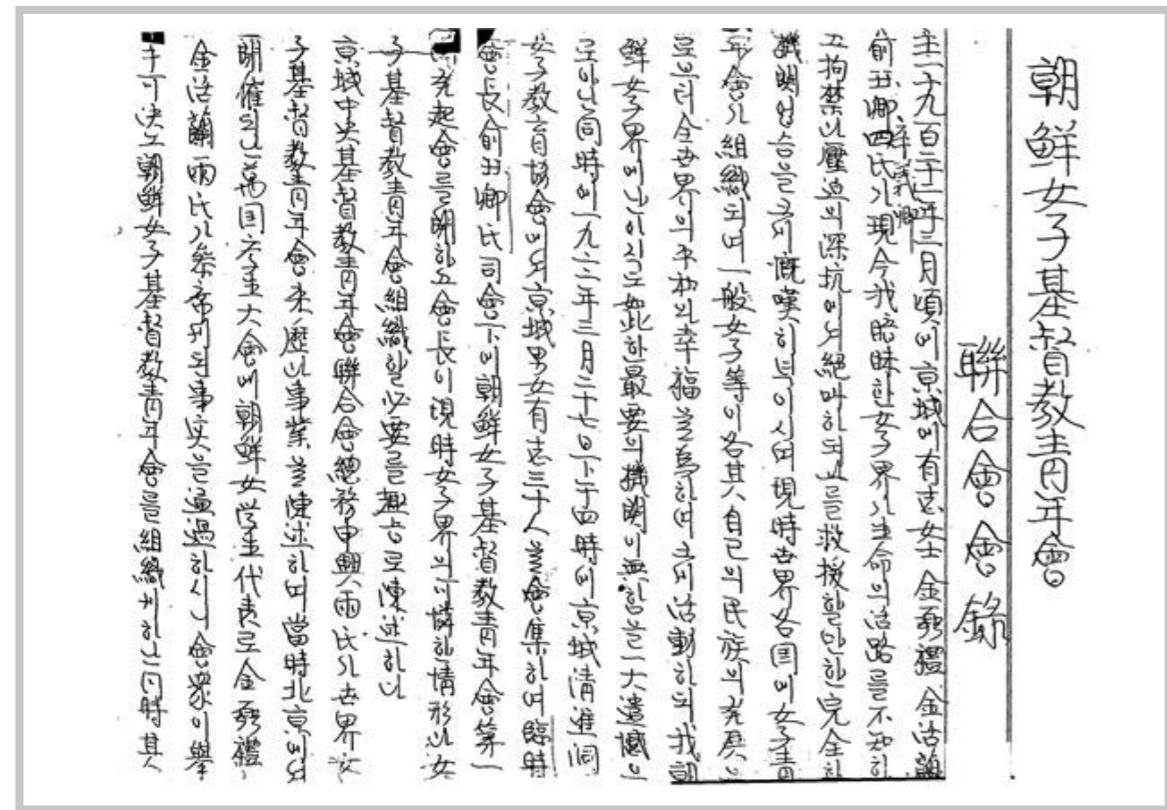 朝鮮女子基督教青年會
聯合會會錄
主一九百二十二年三月頃에京城에有志女士金弼禮金活蘭
俞珏卿四氏가現今我暗昧한女子界가生命의活路를不知하
고拘禁과壓迫의深坑에서絕叫하되此를救援할만한完全한
機關업슴을 慨嘆히 녁이시며現時世界各国에女子青
年會가組織되여一般女子等이各其自己의民族의 發展
으로부터全世界의平和와幸福을 爲하여 活動하되我朝
鮮女子界에난 이지음如此한最要의機関이無함은一大遺憾으
로아난同時에一九二二年三月二十七日下午四時에京城清進洞
女子教育協會에서京城男女有志三十人을會集하여臨時
會長俞珏卿氏司會下에朝鮮女子基督教青年會第一
回發起會를開하고會長이現時女子界의可憐한情形과女
子基督教青年會組織할必要를趣旨로陳述하니
京城中央基督教青年會聯合會總務申興雨氏가世界女
子基督教青年會来歷과事業을陳述하며當時北京에서
開催되난萬国学生大會에朝鮮女学生代表로金弼禮
金活蘭兩氏가參席케된事实을通過하시니會衆이擧
手可決로朝鮮女子基督教青年會를組織케하난同時其